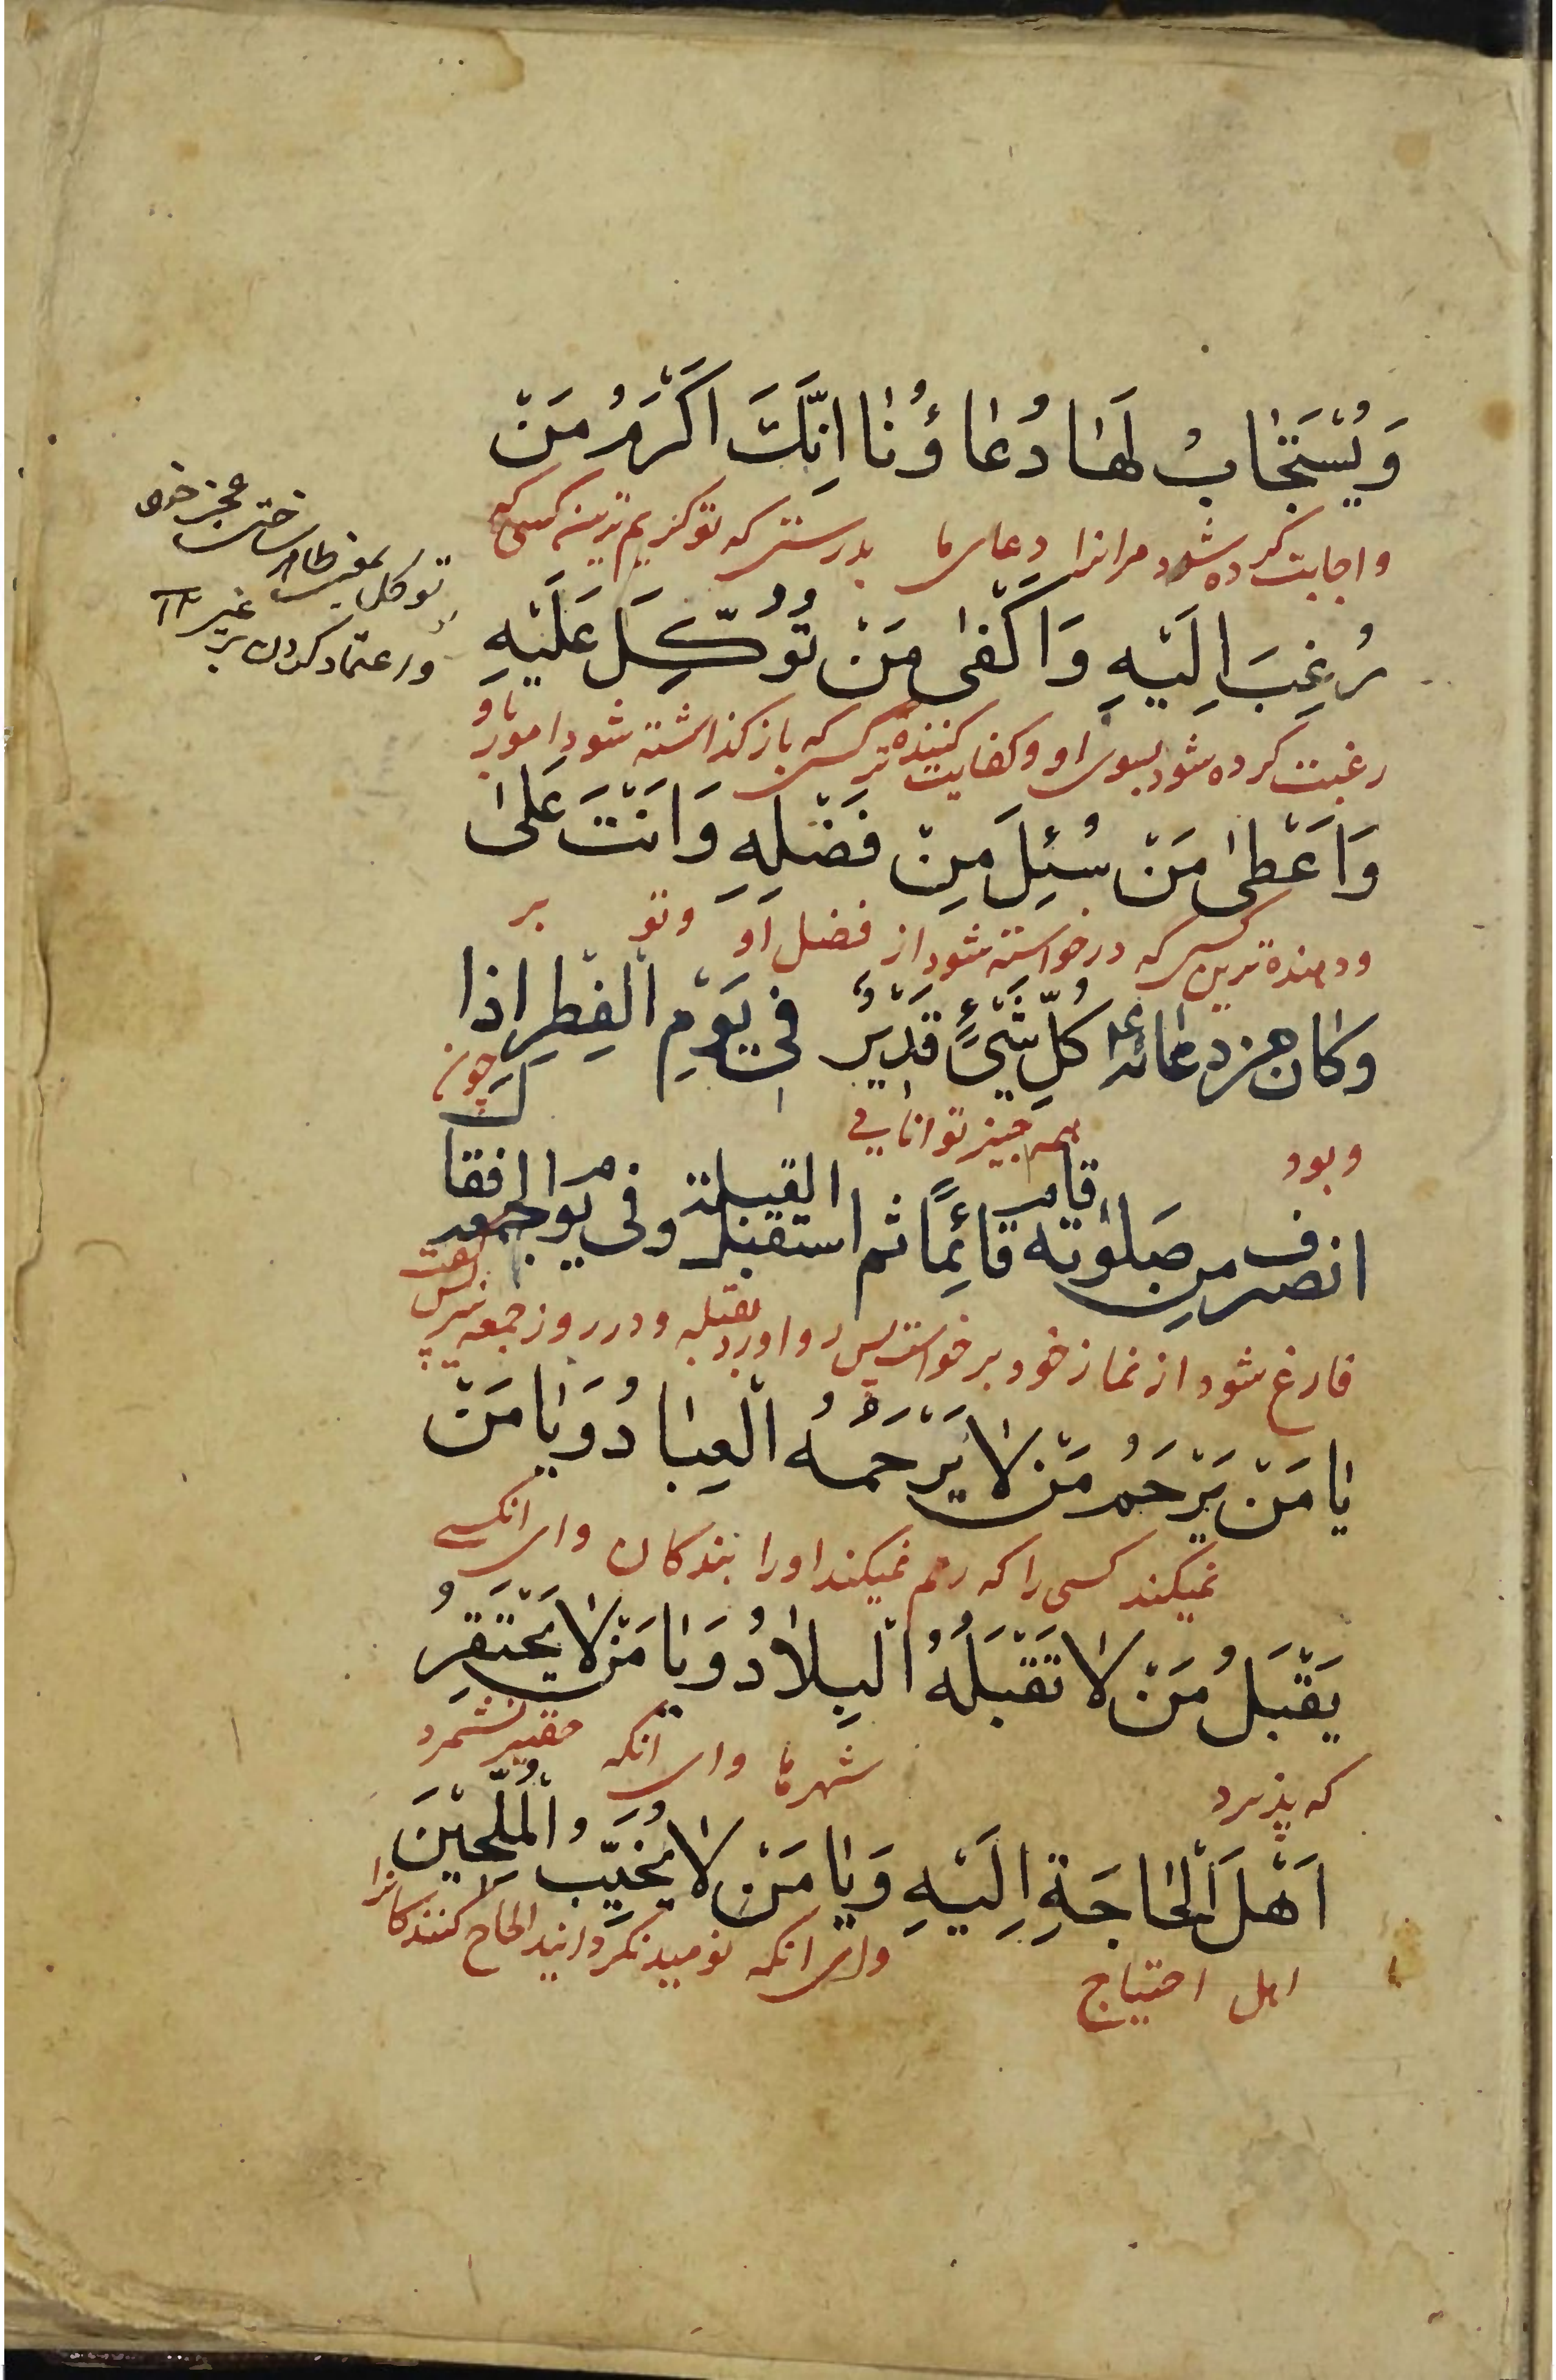 وَيُسْتَجٰابُ لَهٰا دُعٰاؤُنٰا اِنَّكَ اَكْرَمُ مَنْ
واجابت کرده شود مرانرا دعای ما بدرستی که تو کریم ترین کسی که
رُغِبَ اِلَيْهِ وَاَكْفٰى مَنْ تُوُكِّلَ عَلَيْهِ
رغبت کرده شود بسوی او وکفایت کننده تر کسی که باز گذاشته شود امور باو
وَاَعْطىٰ مَنْ سُئِلَ مِنْ فَضْلِهِ وَاَنْتَ عَلىٰ
ودهنده ترین کسی که درخواسته شود از فضل او وتو بر
كُلِّ شَيْءٍ قَدِيْرٌ وكان من دعائه ع في يَوْمِ الْفِطْرِ اِذا
وبود همه چیز توانایی چون
انصرف من صلوٰته قام قٰائِمًا ثم استقبل القبلة وفي يوم الجمعة فقال
فارغ شود از نماز خود برخواست پس رو اورد بقبله ودر روز جمعه نیز پس گفت
يٰا مَنْ يَرْحَمُ مَنْ لاٰ يَرْحَمُهُ الْعِبٰادُ وَيٰا مَنْ
نمیکند کسی را که رحم نمیکند او را بندکان وای انکسی
يَقْبَلُ مَنْ لاٰ تَقْبَلُهُ الْبِلاٰدُ وَيٰا مَنْ لاٰ يَحْتَقِرُ
که پذیرد شهرها وای انکه حقیر نشمرد
اَهْلَ الْحٰاجَةِ اِلَيْهِ وَيٰا مَنْ لاٰ يُخَيِّبُ الْمُلِحِّيْنَ
اهل احتیاج وای انکه نومید نکرداند الحاح کنندکانرا
توکل بمعنی ظاهر ساختن عجز خود
واعتماد کردن بر غیر